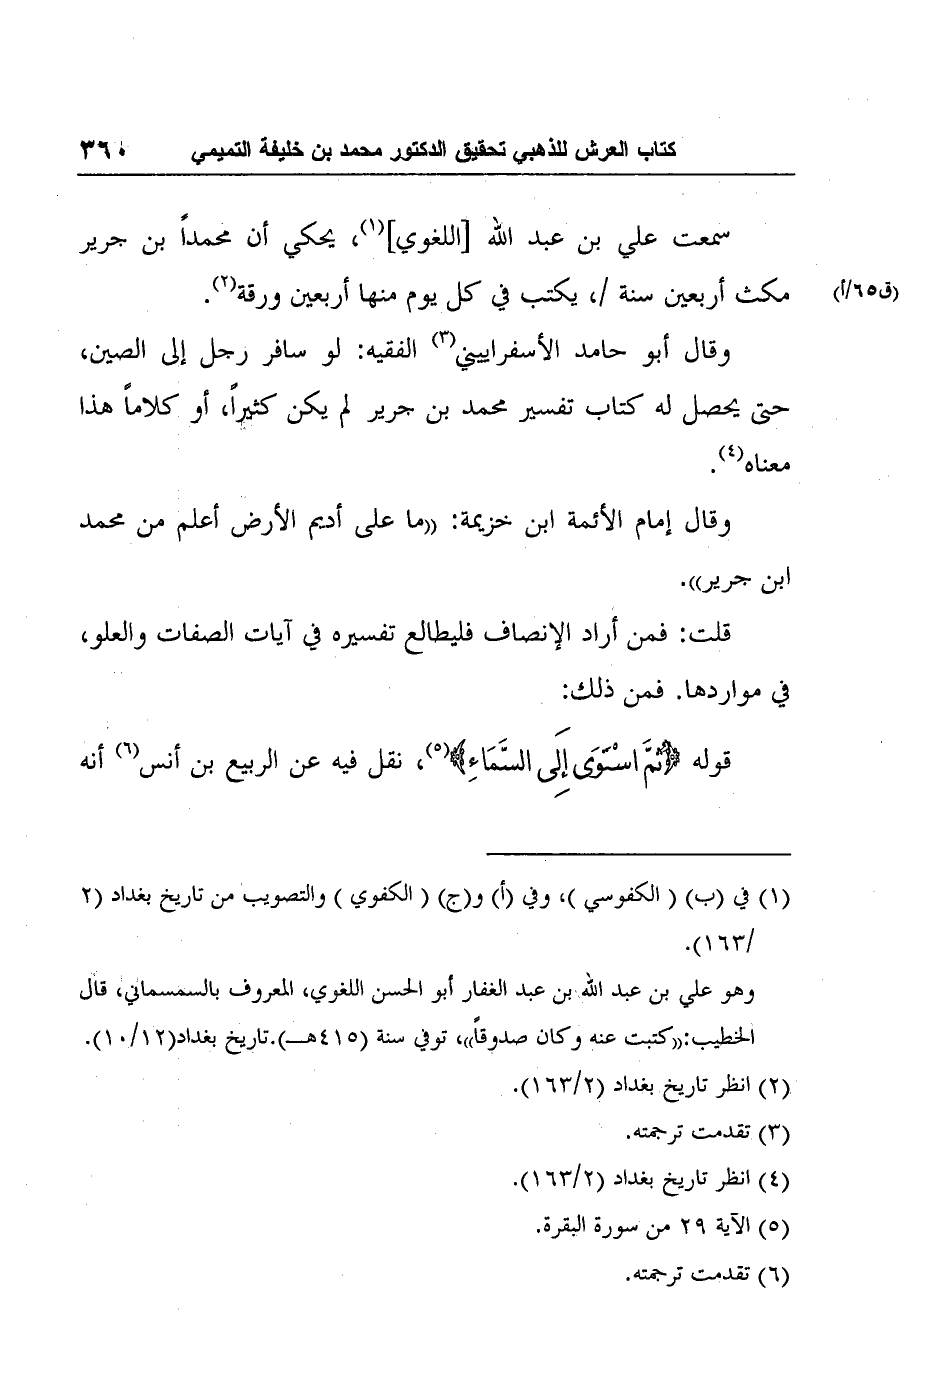 كتاب العرش للذهبي تحقيق الدكتور محمد بن خليفة التميمي ٣٦٠
سمعت علي بن عبد الله [اللغوي](١)، يحكي أن محمداً بن جرير
مكث أربعين سنة /، يكتب في كل يوم منها أربعين ورقة(٢). (ق٦٥/أ)
وقال أبو حامد الأسفراييني(٣) الفقيه: لو سافر رجل إلى الصين،
حتى يحصل له كتاب تفسير محمد بن جرير لم يكن كثيراً، أو كلاماً هذا
معناه(٤).
وقال إمام الأئمة ابن خزيمة: ((ما على أديم الأرض أعلم من محمد
ابن جرير)).
قلت: فمن أراد الإنصاف فليطالع تفسيره في آيات الصفات والعلو،
في مواردها. فمن ذلك:
قوله ﴿ثُمَّ اسْتَوَى إِلَى السَّمَاءِ﴾(٥)، نقل فيه عن الربيع بن أنس(٦) أنه
(١) في (ب) ( الكفوسي )، وفي (أ) و(ج) ( الكفوي ) والتصويب من تاريخ بغداد (٢
/١٦٣).
وهو علي بن عبد الله بن عبد الغفار أبو الحسن اللغوي، المعروف بالسمسماني، قال
الخطيب:((كتبت عنه وكان صدوقاً))، توفي سنة (٤١٥هـ).تاريخ بغداد(١٠/١٢).
(٢) انظر تاريخ بغداد (١٦٣/٢).
(٣) تقدمت ترجمته.
(٤) انظر تاريخ بغداد (١٦٣/٢).
(٥) الآية ٢٩ من سورة البقرة.
(٦) تقدمت ترجمته.